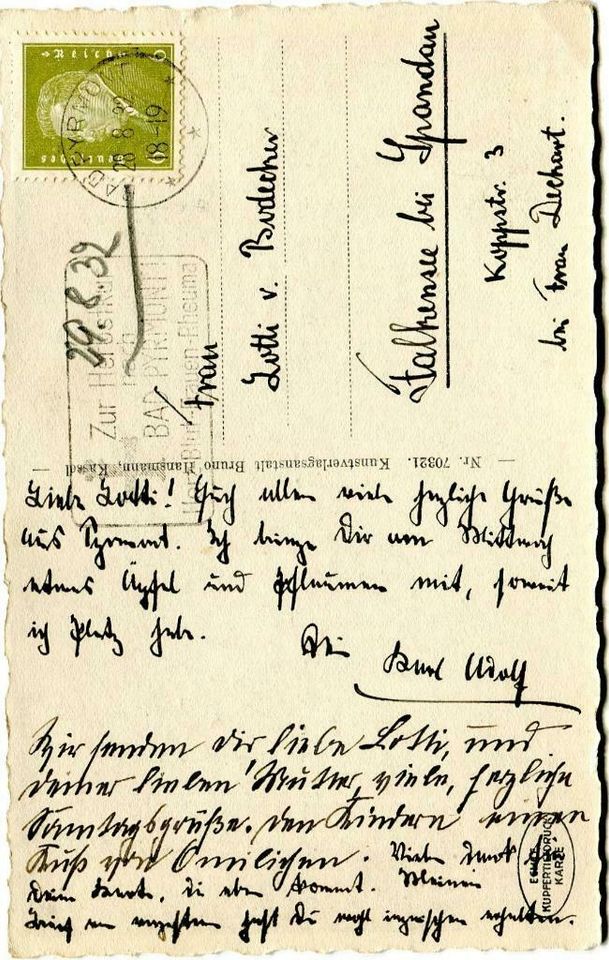 Deutsches Reich
6
BAD PYRMONT
28.8.32 18-19
29.8.32
Zur Herbstkur
in
BAD PYRMONT
Herz-Blut-Frauen-Rheuma
Frau
Lotti v. Bodecker
Falkensee bei Spandau
Koppstr. 3
bei Frau Dechart.
Nr. 70321. Kunstverlagsanstalt Bruno Hansmann, Kassel
Liebe Lotti! Euch allen viele herzliche Grüße
aus Pyrmont. Ich bringe Dir am Mittwoch
etwas Äpfel und Pflaumen mit, soweit
ich Platz habe.
Dein
Karl Adolf
Wir senden dir liebe Lotti, und
deiner lieben Mutter, viele, herzliche
Sonntagsgrüße. Den Kindern einen
Kuß von Omilichen. Vielen Dank für
Deine Karte, die eben kommt. Meinen
Brief hast Du wohl inzwischen erhalten.
ECHTE
KUPFERTIEFDRUCK
KARTE